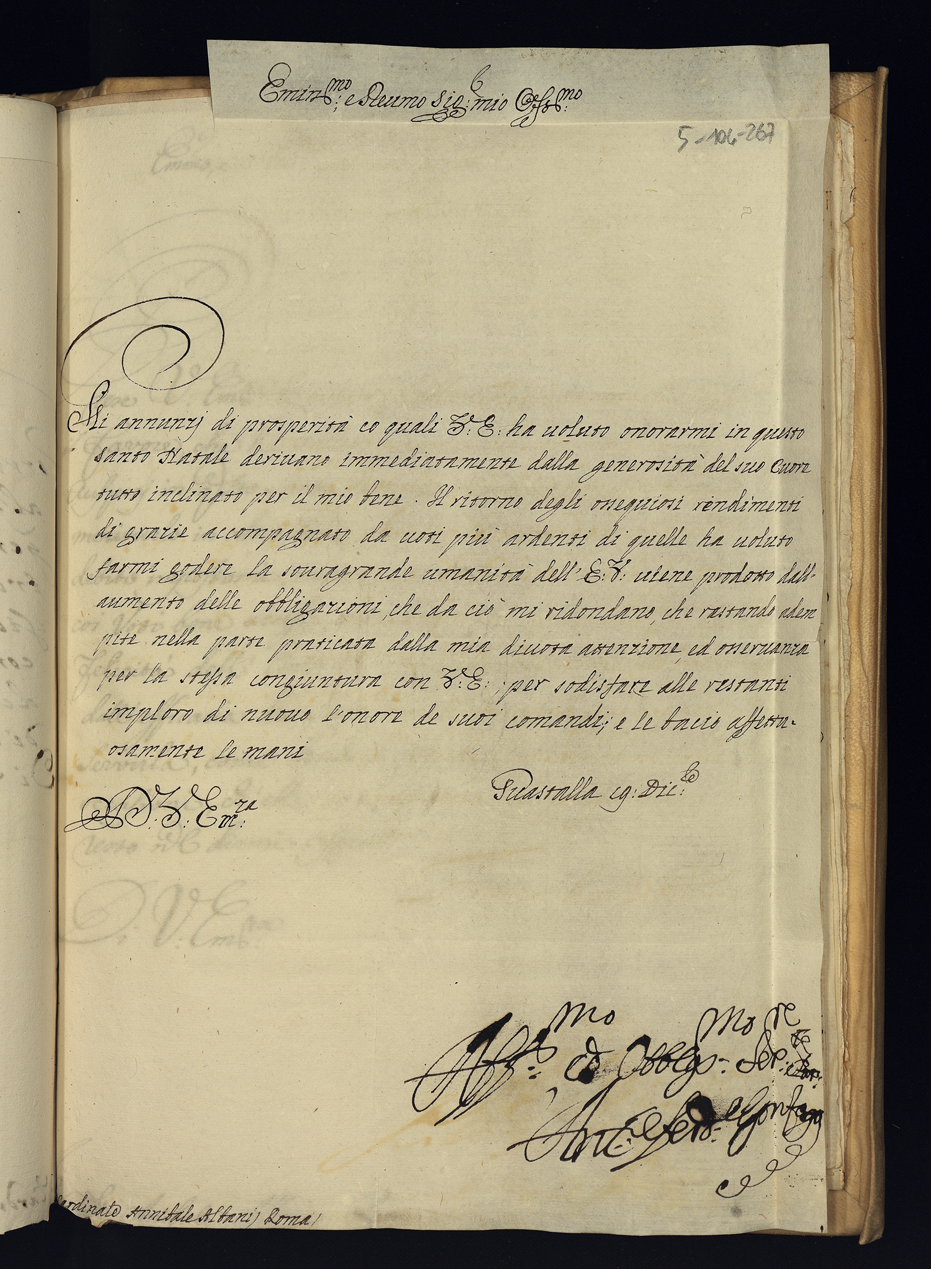 Emin:mo e Reumo Sig:e mio Oss:mo
5-106-267
Gli annunzj di prosperità co quali V: E: ha uoluto onorarmi in questo
Santo Natale deriuano immediatamente dalla generosità del suo Cuore
tutto inclinato per il mio bene. Il ritorno degli ossequiosi rendimenti
di grazie accompagnato da uoti più ardenti di quelle ha uoluto
farmi godere la souragrande umanità dell' E: V: uiene prodotto dall'
aumento delle obbligazioni, che da ciò mi ridondano, che restando adem
pite nella parte praticata dalla mia diuota attenzione, ed osseruanza
per la stessa congiuntura con V: E:, per sodisfare alle restanti
imploro di nuouo l'onore de suoi comandi; e le bacio affettu-
osamente le mani
Guastalla 19: Dic:e
D. V. Em:za
Aff:mo ed Obblgo:mo Ser:re
Ant:o Ferd:o Gonzaga
Cardinale Annibale Albani, Roma